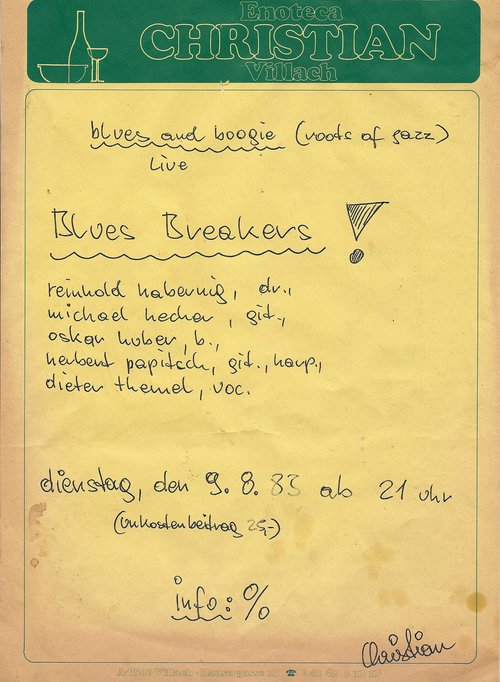 Enoteca
CHRISTIAN
Villach
blues and boogie (roots of jazz)
live
Blues Breakers !
reinhold habernig, dr.,
michael hecher, git.,
oskar huber, b.,
herbert papitsch, git., harp.,
dieter themel, voc.
dienstag, den 9. 8. 83 ab 21 uhr
(unkostenbeitrag 25,-)
info: %
Christian
Villach - Hausergasse